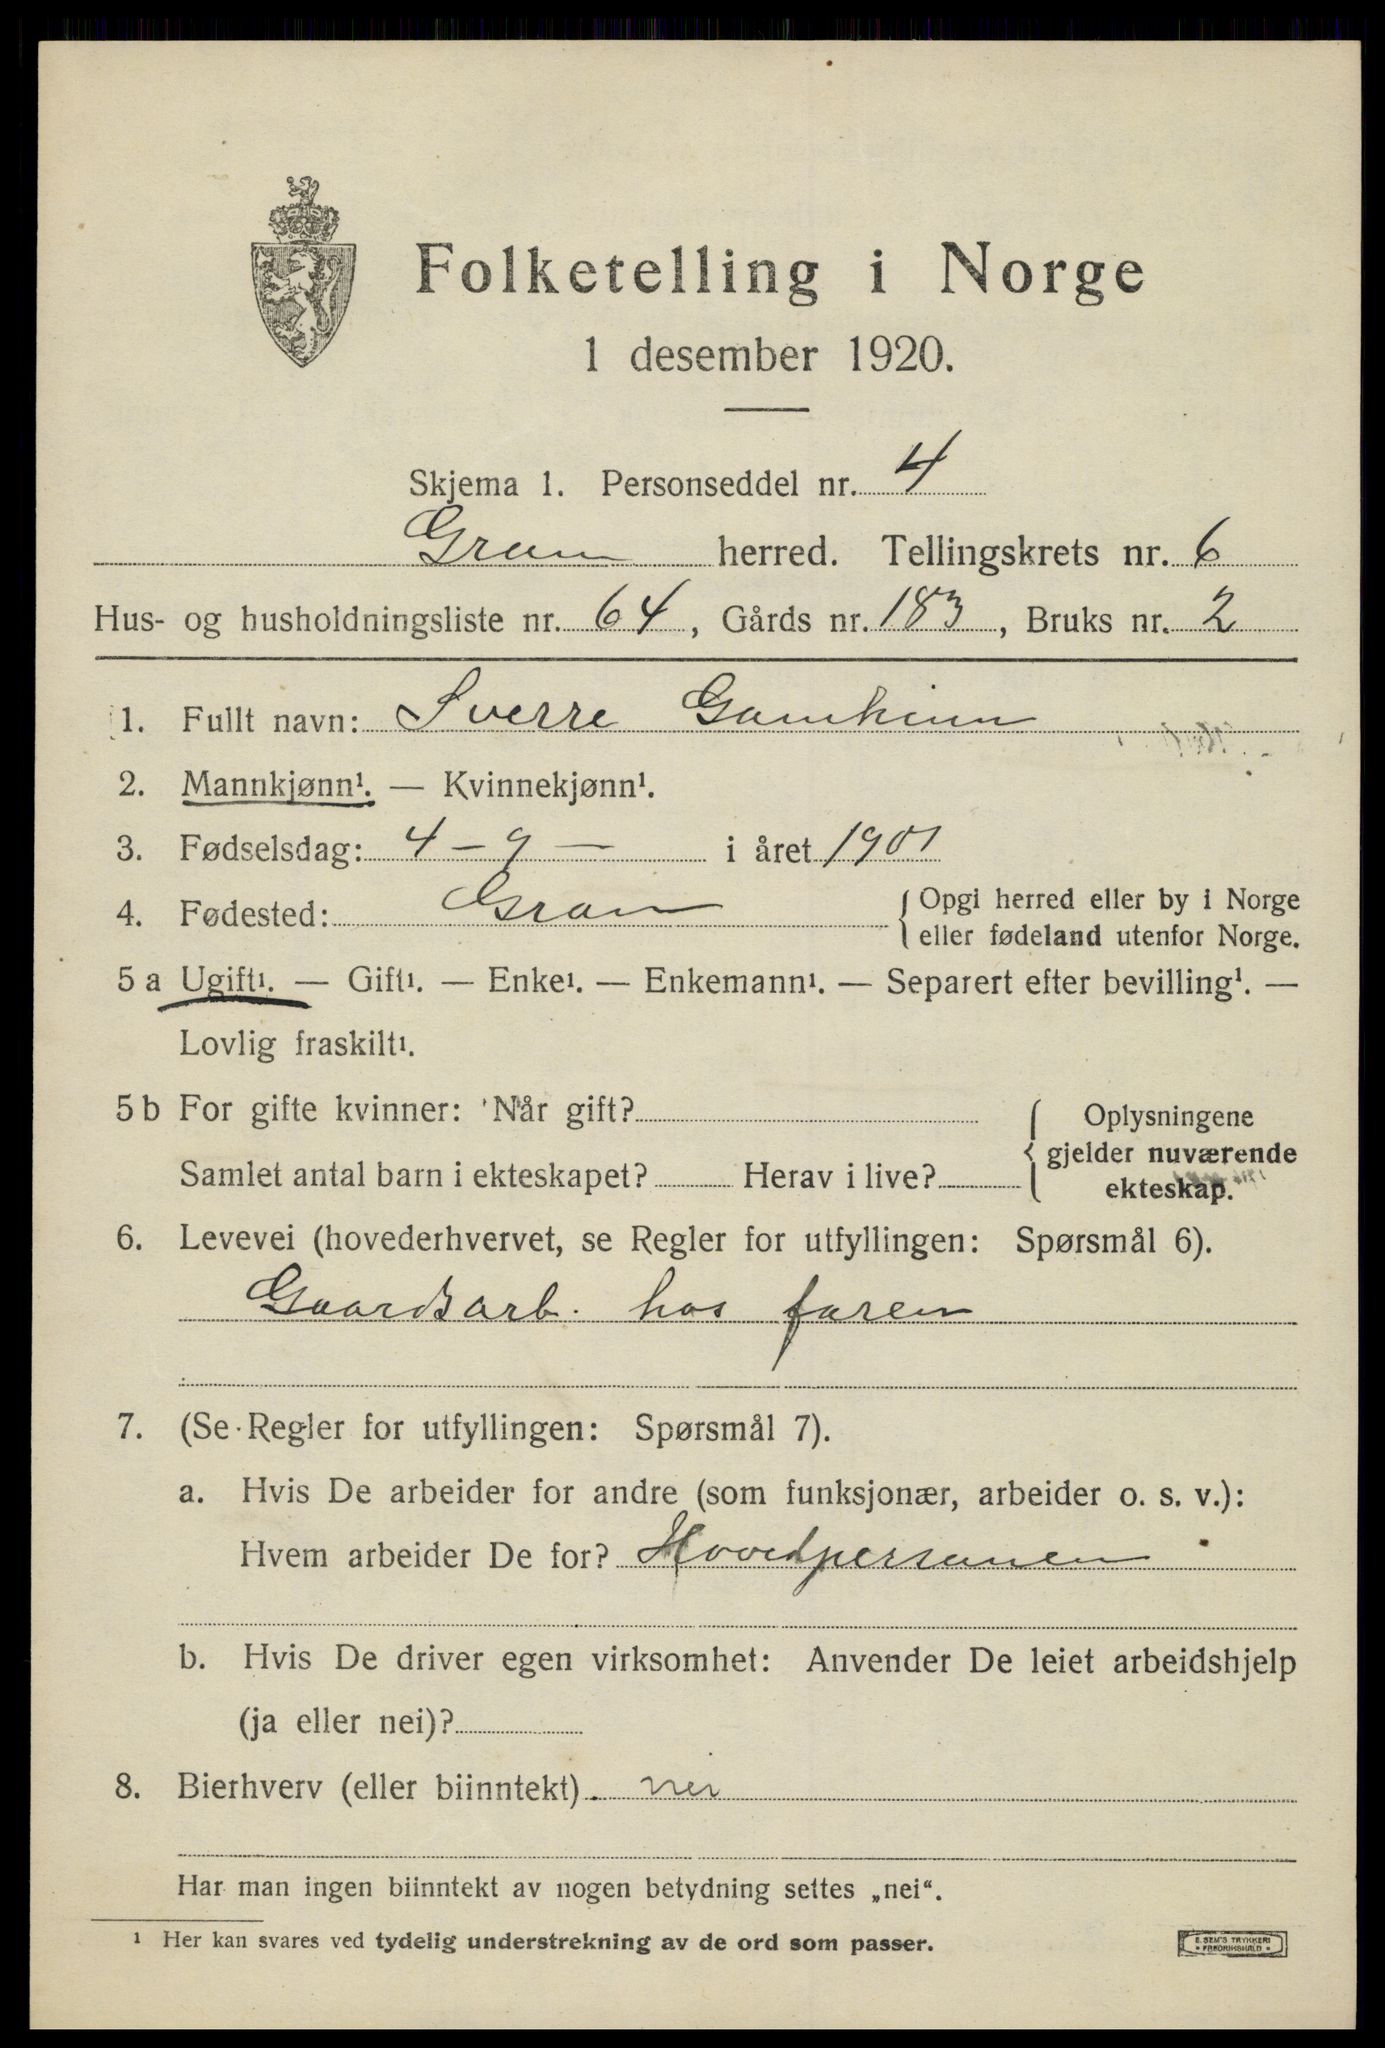 Folketelling i Norge
1 desember 1920.
Skjema 1. Personseddel nr. 4
Gran herred. Tellingskrets nr. 6
Hus- og husholdningsliste nr. 64, Gårds nr. 183, Bruks nr. 2
1. Fullt navn: Sverre
2. Mannkjønn¹. — Kvinnekjønn¹.
3. Fødselsdag: 4 - 9 — i året 1901
4. Fødested: Gran { Opgi herred eller by i Norge
eller fødeland utenfor Norge.
5 a Ugift¹. — Gift¹. — Enke¹. — Enkemann¹. — Separert efter bevilling¹. —
Lovlig fraskilt¹.
5 b For gifte kvinner: Når gift? { Oplysningene
gjelder nuværende
Samlet antal barn i ekteskapet? Herav i live? ekteskap.
6. Levevei (hovederhvervet, se Regler for utfyllingen: Spørsmål 6).
Gaardsarb. hos faren
7. (Se Regler for utfyllingen: Spørsmål 7).
a. Hvis De arbeider for andre (som funksjonær, arbeider o. s. v.):
Hvem arbeider De for? Hovedpersonen
b. Hvis De driver egen virksomhet: Anvender De leiet arbeidshjelp
(ja eller nei)?
8. Bierhverv (eller biinntekt). nei
Har man ingen biinntekt av nogen betydning settes „nei“.
¹ Her kan svares ved tydelig understrekning av de ord som passer.
E. SEM'S TRYKKERI
FREDRIKSHALD